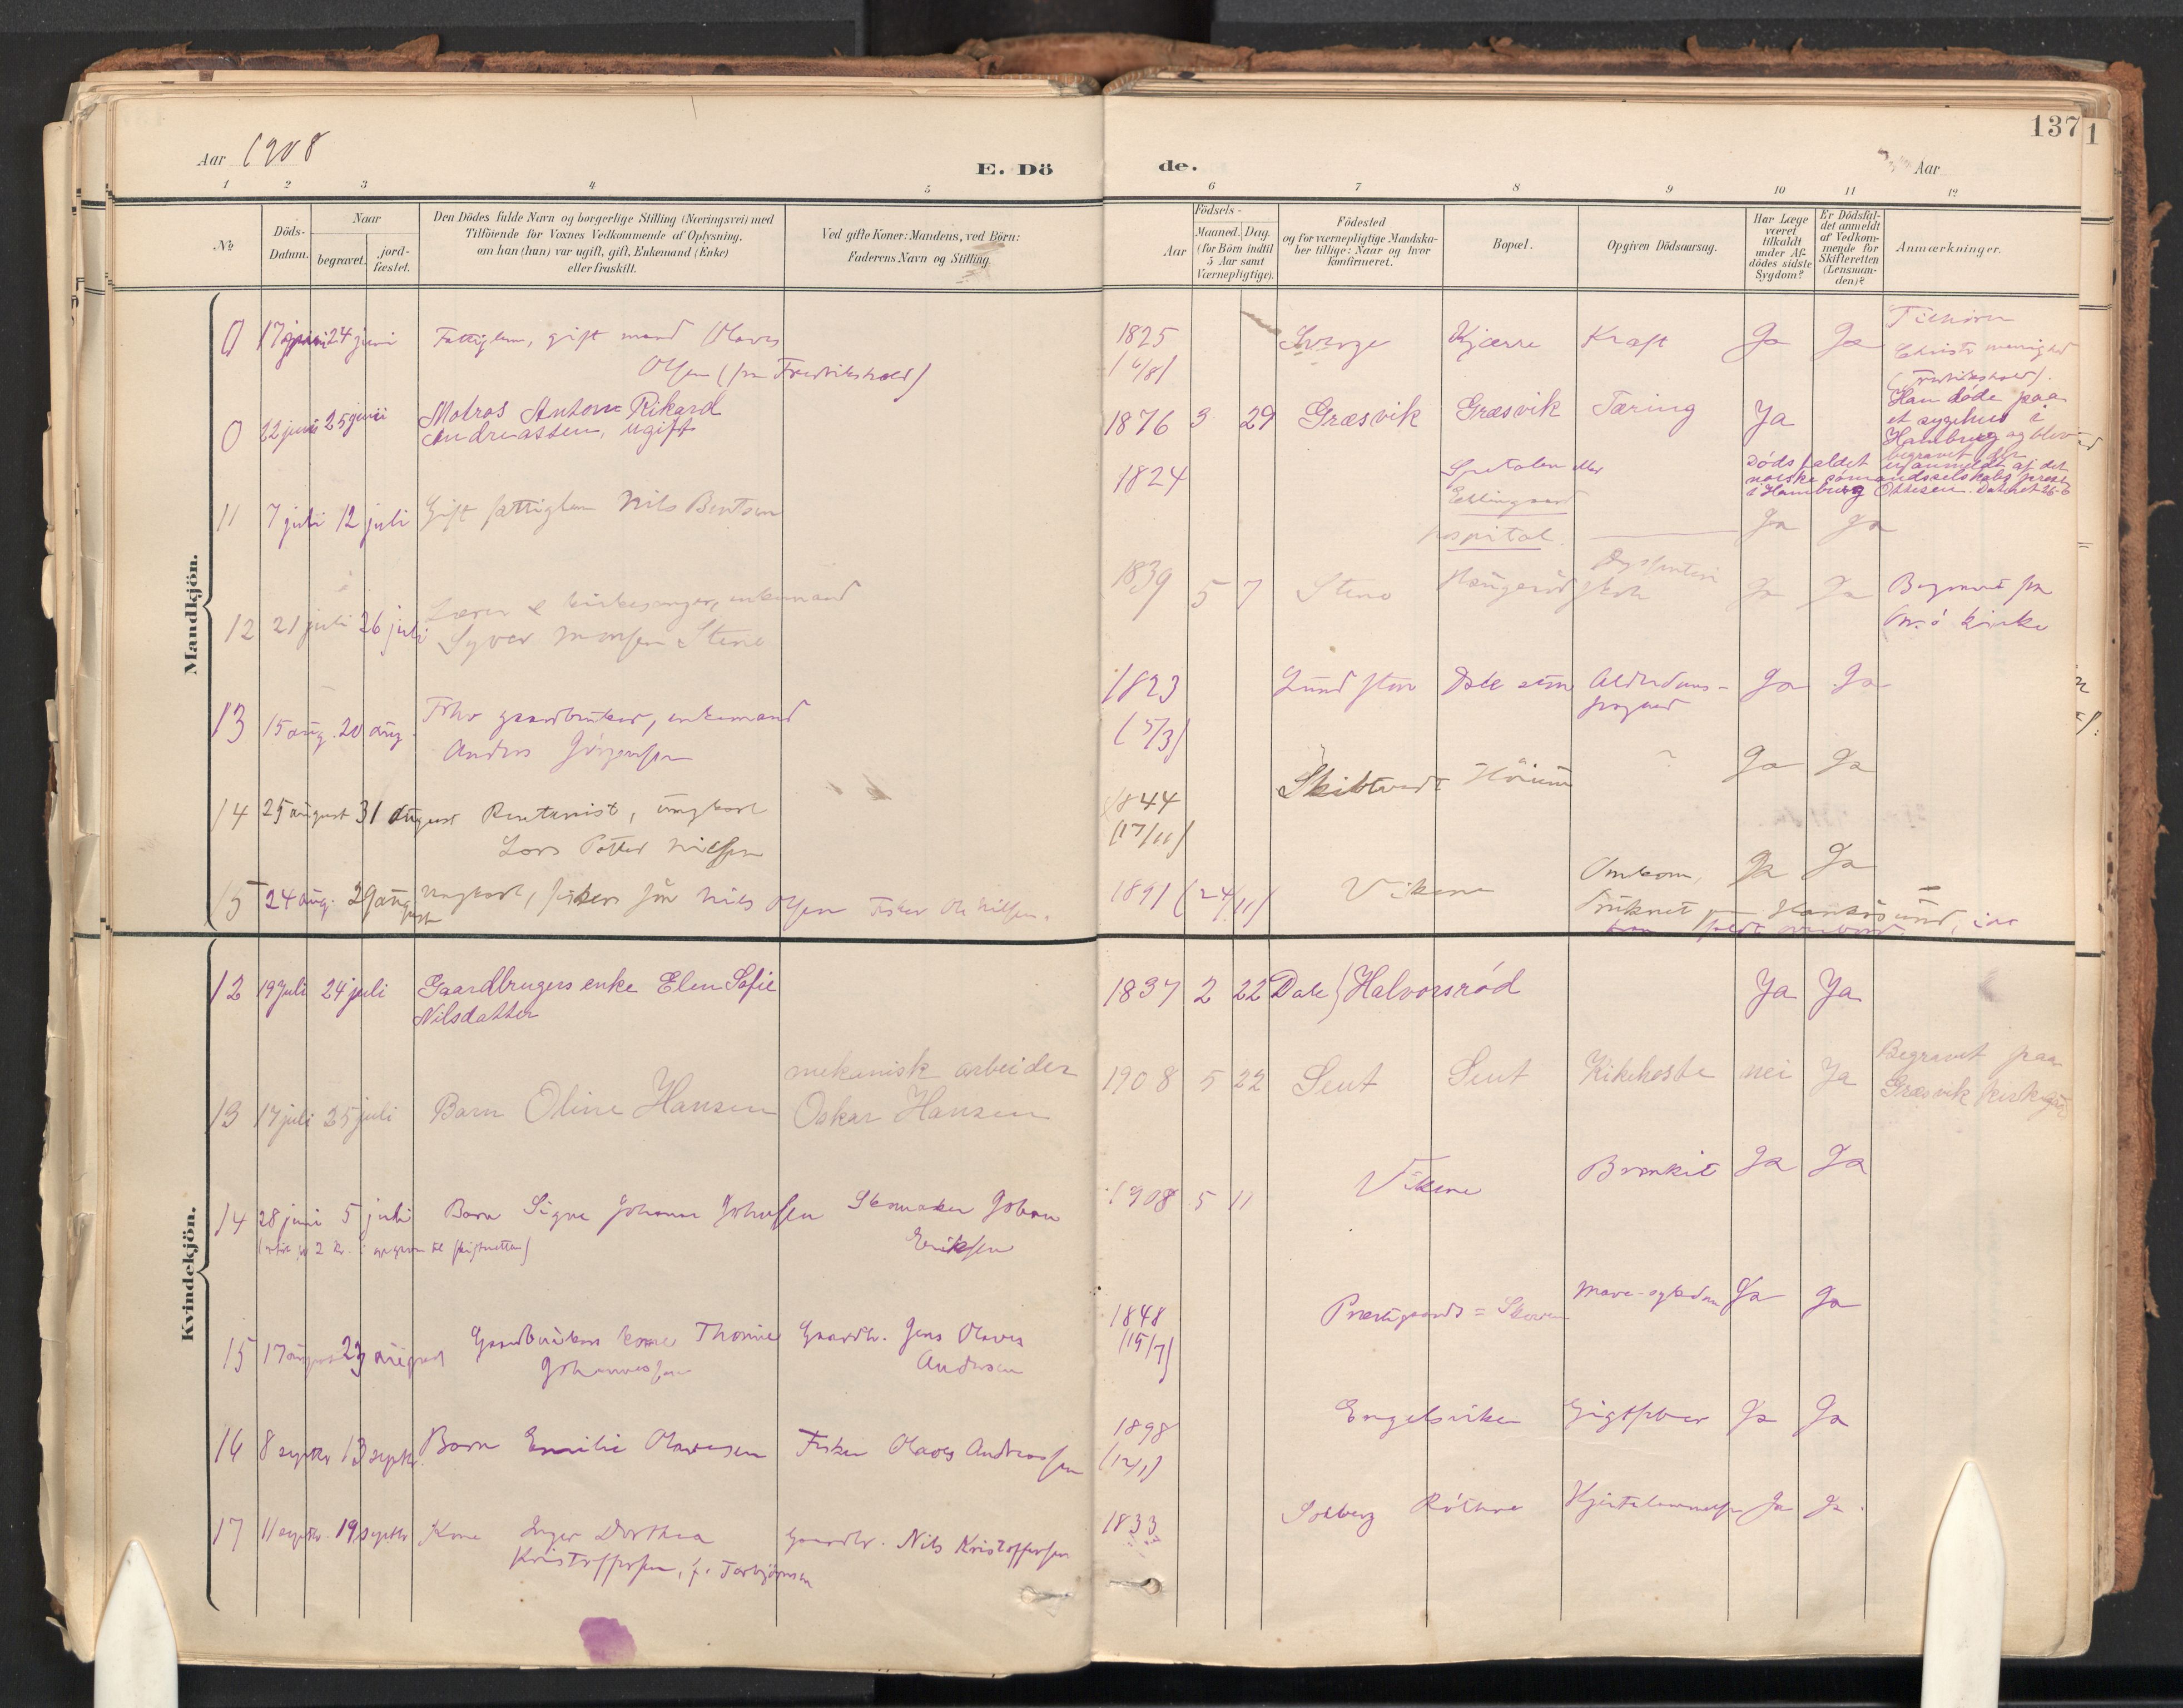 137
1
Aar 1908
E. Dö
de.
Aar
1 2 3 4 5 6 7 8 9 10 11 12
№
Döds-
Datum.
Naar
begravet.
jord-
fæstet.
Den Dödes fulde Navn og borgerlige Stilling (Næringsvei) med
Tilföiende for Voxnes Vedkommende af Oplysning,
om han (hun) var ugift, gift, Enkemand (Enke)
eller fraskilt.
Ved gifte Koner: Mandens, ved Börn:
Faderens Navn og Stilling.
Aar
Födsels-
Maaned. Dag.
(for Börn indtil
5 Aar samt
Værnepligtige).
Födested
og for værnepligtige Mandska-
ber tillige: Naar og hvor
konfirmeret.
Bopæl.
Opgiven Dödsaarsag.
Har Læge
været
tilkaldt
under Af-
dödes sidste
Sygdom?
Er Dödsfal-
det anmeldt
af Vedkom-
mende for
Skifteretten
(Lensman-
den)?
Anmærkninger.
Mandkjön.
0 17 juni 24 juni Fattiglem, gift mand Olaves 1825 Sverge Kjærre Kræft Ja Ja
Olsen (fra Fredrikshald)
0 22 juni 25 juni Matros Anton Rikard 1876 3 29 Græsvik Græsvik Tæring Ja Han døde paa
Andreassen, ugift et sygehus i
Hamburg og blev
begravet der
Dødsfaldet er anmeldt af det
norske sømandsselskabs prest
i Hamburg Ottesen. Dateret 26-6
11 7 juli 12 juli Gift fattiglem Nils Bentsen 1824 Spetalen eller
Elingaard
hospital. Ja Ja
12 21 juli 26 juli Lærer & kirkesanger, enkemand 1839 5 7 Stene Ja Ja Begravet
Syver Monsen Stene kirke
13 15 aug. 20 aug. gaardbruker, enkemand 1823 Dale Alderdoms- Ja Ja
Anders Jörgensen (5/3)
14 25 august 31 august Rentenist, ungkarl 1844 Skibtvedt ? Ja Ja
Lars Petter Nilsen (17/11)
15 24 aug. 29 august Ungkarl, fiskers sön Nils Olsen Fisker Ole Nilsen. 1891 (24/11) Vikene Omkom, Ja Ja
druknet Hankösund,
Kvindekjön.
12 19 juli 24 juli Gaardbrugers enke Elen Sofie 1837 2 22 Dale Halvorsrød Ja Ja
Nilsdatter
13 17 juli 25 juli Barn Oline Hansen mekanisk arbeider 1908 5 22 Seut Seut Kikehoste nei Ja Begravet paa
Oskar Hansen Græsvik
14 28 juni 5 juli Barn Signe Johanne Johansen Skomaker Johan 1908 5 11 Vikene Bronkit Ja Ja
Eriksen
15 17 august 23 august Gaardbrukers kone Thomine Gaardbr. Jens Olaves 1848 Mave-sykdom Ja Ja
Johannessen Andersen (15/7)
16 8 septbr 13 septbr. Barn Emilie Olavesen Fisker Olaves Andreassen 1898 Engelsviken Gigtfeber Ja Ja
(12/1)
17 11 septbr. 19 septbr Kone Inger Dorthea Gaardbr. Nils Kristoffersen 1833 Solberg Ja Ja
Kristoffersen, f. Torbjörnsen